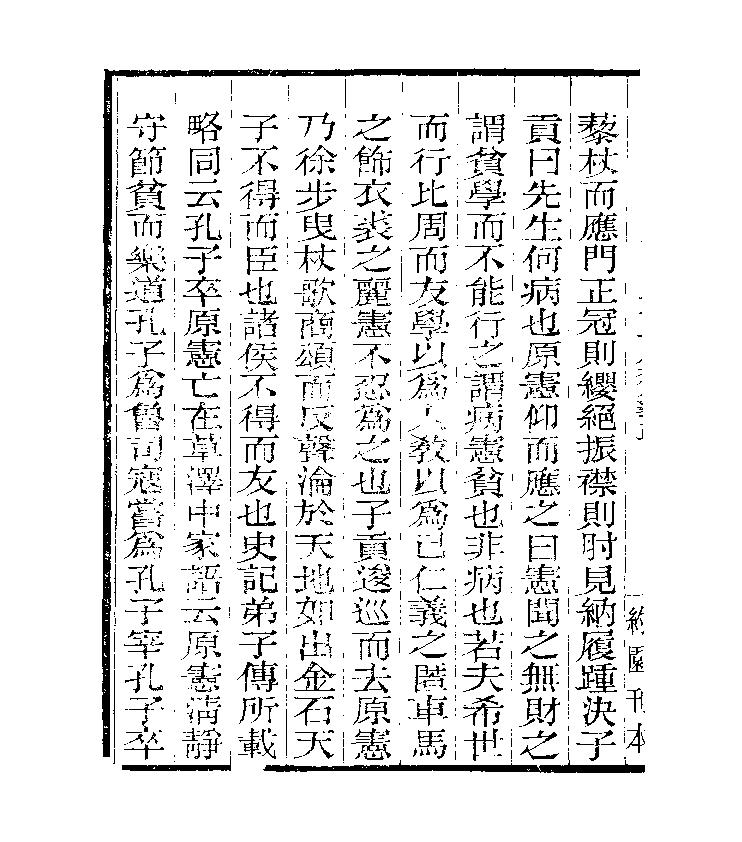 藜杖而應門正冠則纓絕振襟則肘見納履踵決子
貢曰先生何病也原憲仰而應之曰憲聞之無財之
謂貧學而不能行之謂病憲貧也非病也若夫希世
而行比周而友學以為人教以為己仁義之匿車馬
之飾衣裘之麗憲不忍為之也子貢逡巡而去原憲
乃徐步曳杖歌商頌而反聲淪於天地如出金石天
子不得而臣也諸侯不得而友也史記弟子傳所載
略同云孔子卒原憲亡在草澤中家語云原憲清靜
守節貧而樂道孔子為魯司寇嘗為孔子宰孔子卒
約園刊本